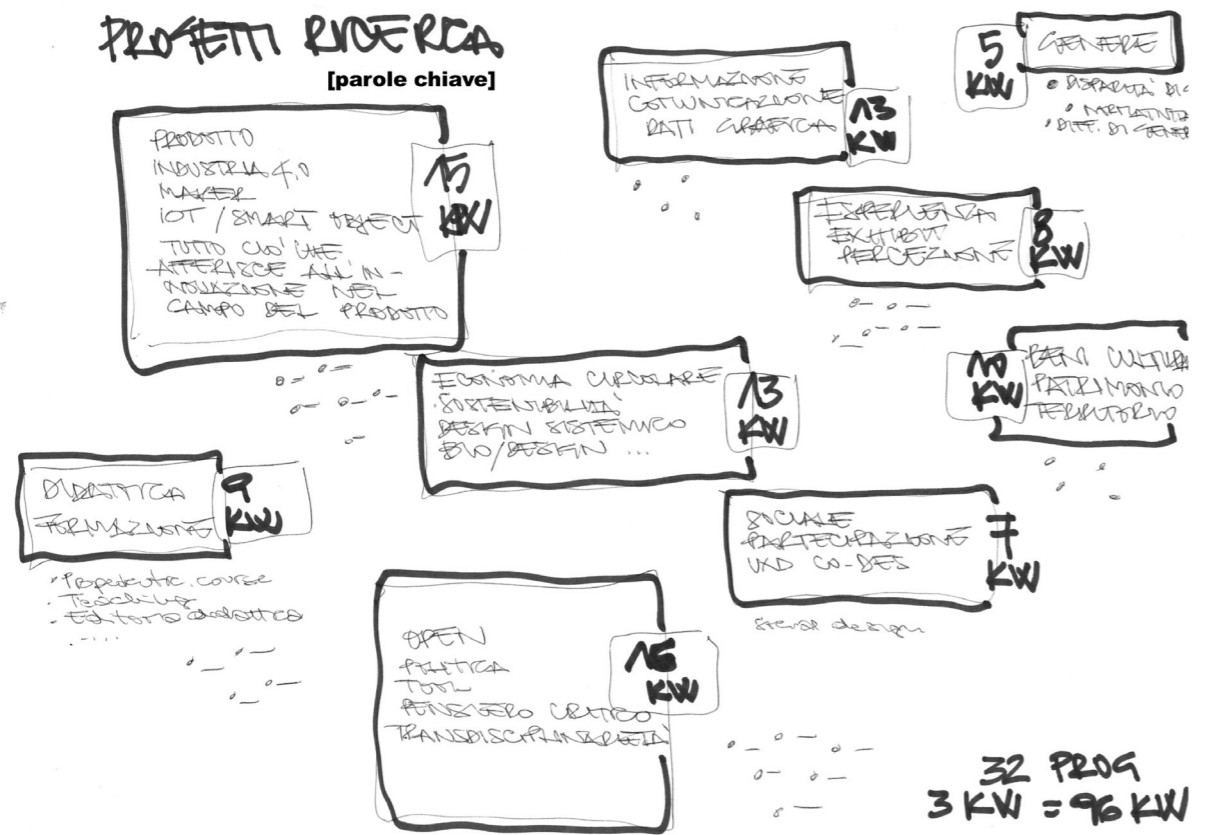 PROGETTI RICERCA
[parole chiave]
PRODOTTO
INDUSTRIA 4,0
MAKER
IOT / SMART OBJECT
TUTTO CIO' CHE
AFFERISCE ALL'IN-
NOVAZIONE NEL
CAMPO DEL PRODOTTO
15
KW
INFORMAZIONE
COMUNICAZIONE
DATI GRAFICA
13
KW
5
KW
GENERE
• DISPARITÀ DI
• DIFF. DI GENER
ESPERIENZA
EXHIBIT
PERCEZIONE
8
KW
ECONOMIA CIRCOLARE
SOSTENIBILITÀ
DESIGN SISTEMICO
BIO/DESIGN ...
13
KW
10
KW
BENI CULTURA
PATRIMONIO
TERRITORIO
DIDATTICA
FORMAZIONE
9
KW
• Propedeutic. course
• Teaching
• Editoria didattica
. ....
SOCIALE
PARTECIPAZIONE
UXD CO-DES
7
KW
design
OPEN
POLITICA
TOOL
PENSIERO CRITICO
TRANSDISCIPLINARIETÀ
15
KW
32 PROG
3 KW = 96 KW